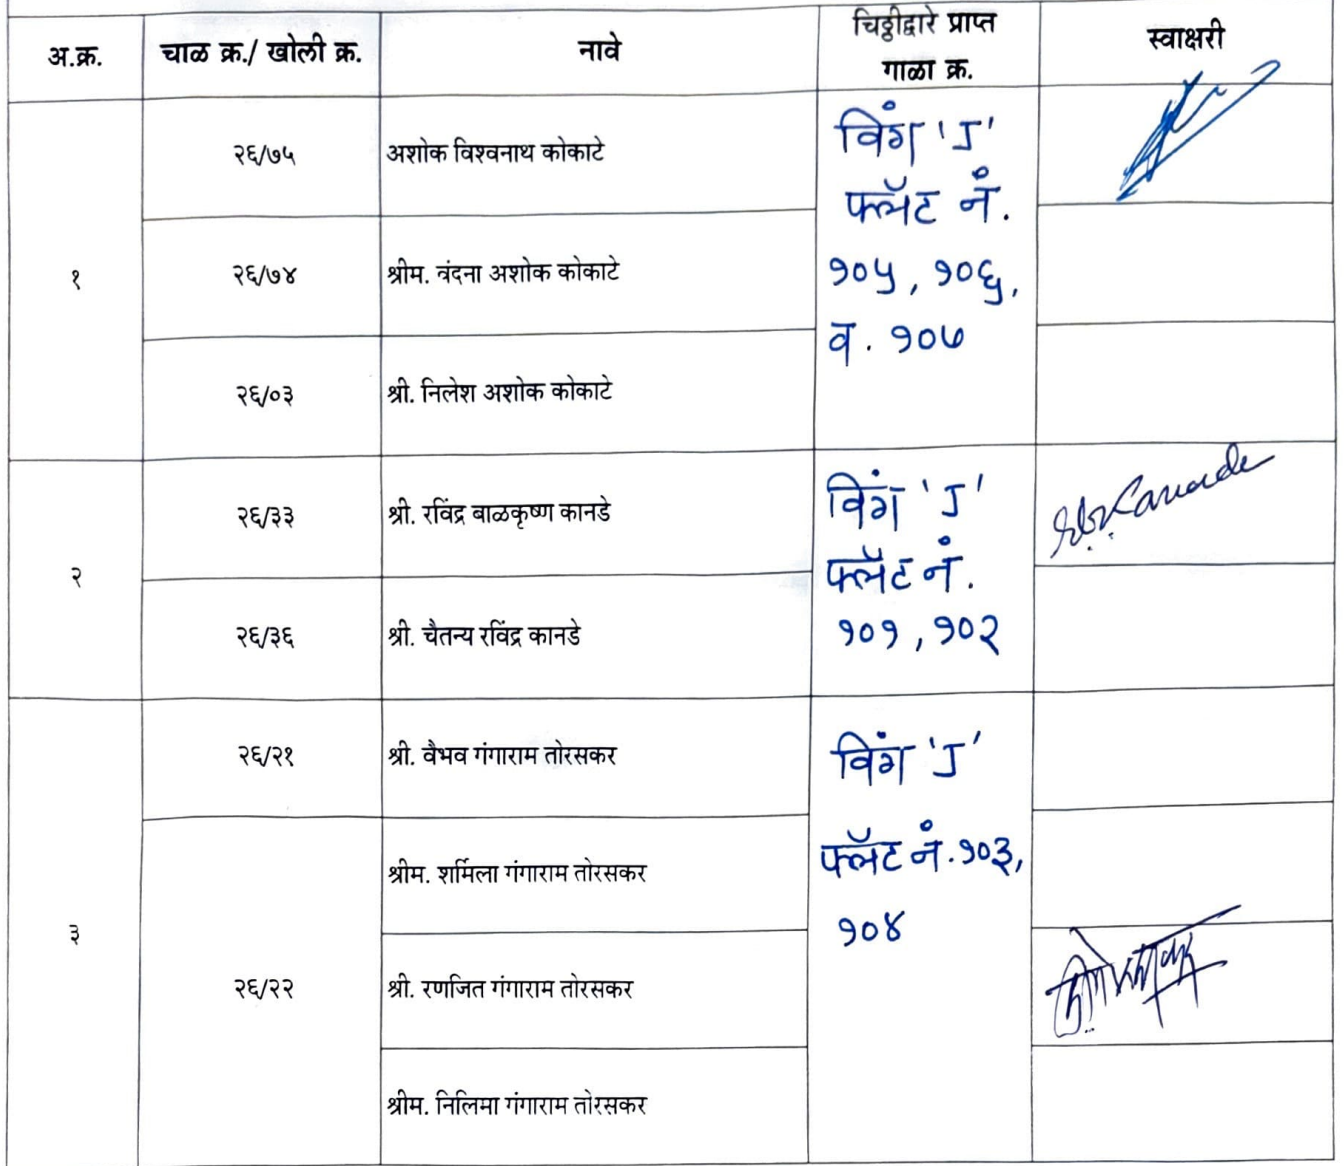 अ.क्र.
चाळ क्र./ खोली क्र.
नावे
चिठ्ठीद्वारे प्राप्त
गाळा क्र.
स्वाक्षरी
१
२६/७५
अशोक विश्वनाथ कोकाटे
विंग 'J'
फ्लॅट नं.
१०५, १०६,
व. १०७
२६/७४
श्रीम. वंदना अशोक कोकाटे
२६/०३
श्री. निलेश अशोक कोकाटे
२
२६/३३
श्री. रविंद्र बाळकृष्ण कानडे
विंग 'J'
फ्लॅट नं.
१०१, १०२
२६/३६
श्री. चैतन्य रविंद्र कानडे
३
२६/२१
श्री. वैभव गंगाराम तोरसकर
विंग 'J'
फ्लॅट नं. १०३,
१०४
२६/२२
श्रीम. शर्मिला गंगाराम तोरसकर
श्री. रणजित गंगाराम तोरसकर
श्रीम. निलिमा गंगाराम तोरसकर